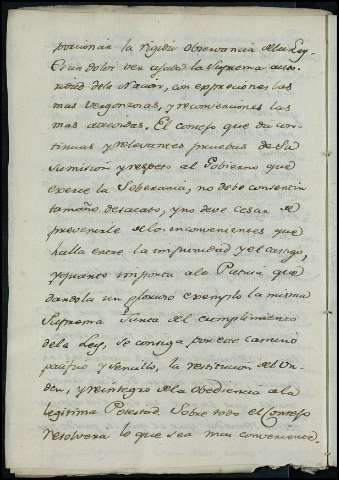 porcionar la rigida observancia de la Ley.
Es un dolor ver ajada la Suprema auto-
ridad de la Nacion, con expresiones las
mas vergonzosas, y reconvenciones las
mas atrevidas. El Consejo que da con-
tinuas y relevantes pruebas de Su
Sumision y respeto al Gobierno que
exerce la Soberania, no debe consentir
tamaño desacato, y no deve cesar de
prevenirle de los inconvenientes que
halla entre la impunidad y el castigo,
y quanto importa a la Patria que
dandola un glorioso exemplo la misma
Suprema Junta del cumplimiento
de la Ley, Se consiga por este camino
pacifico y Sencillo, la restitucion del Or-
den, y reintegro de la Obediencia a la
legitima Potestad. Sobre todo el Consejo
resolvera lo que sea mas conveniente.